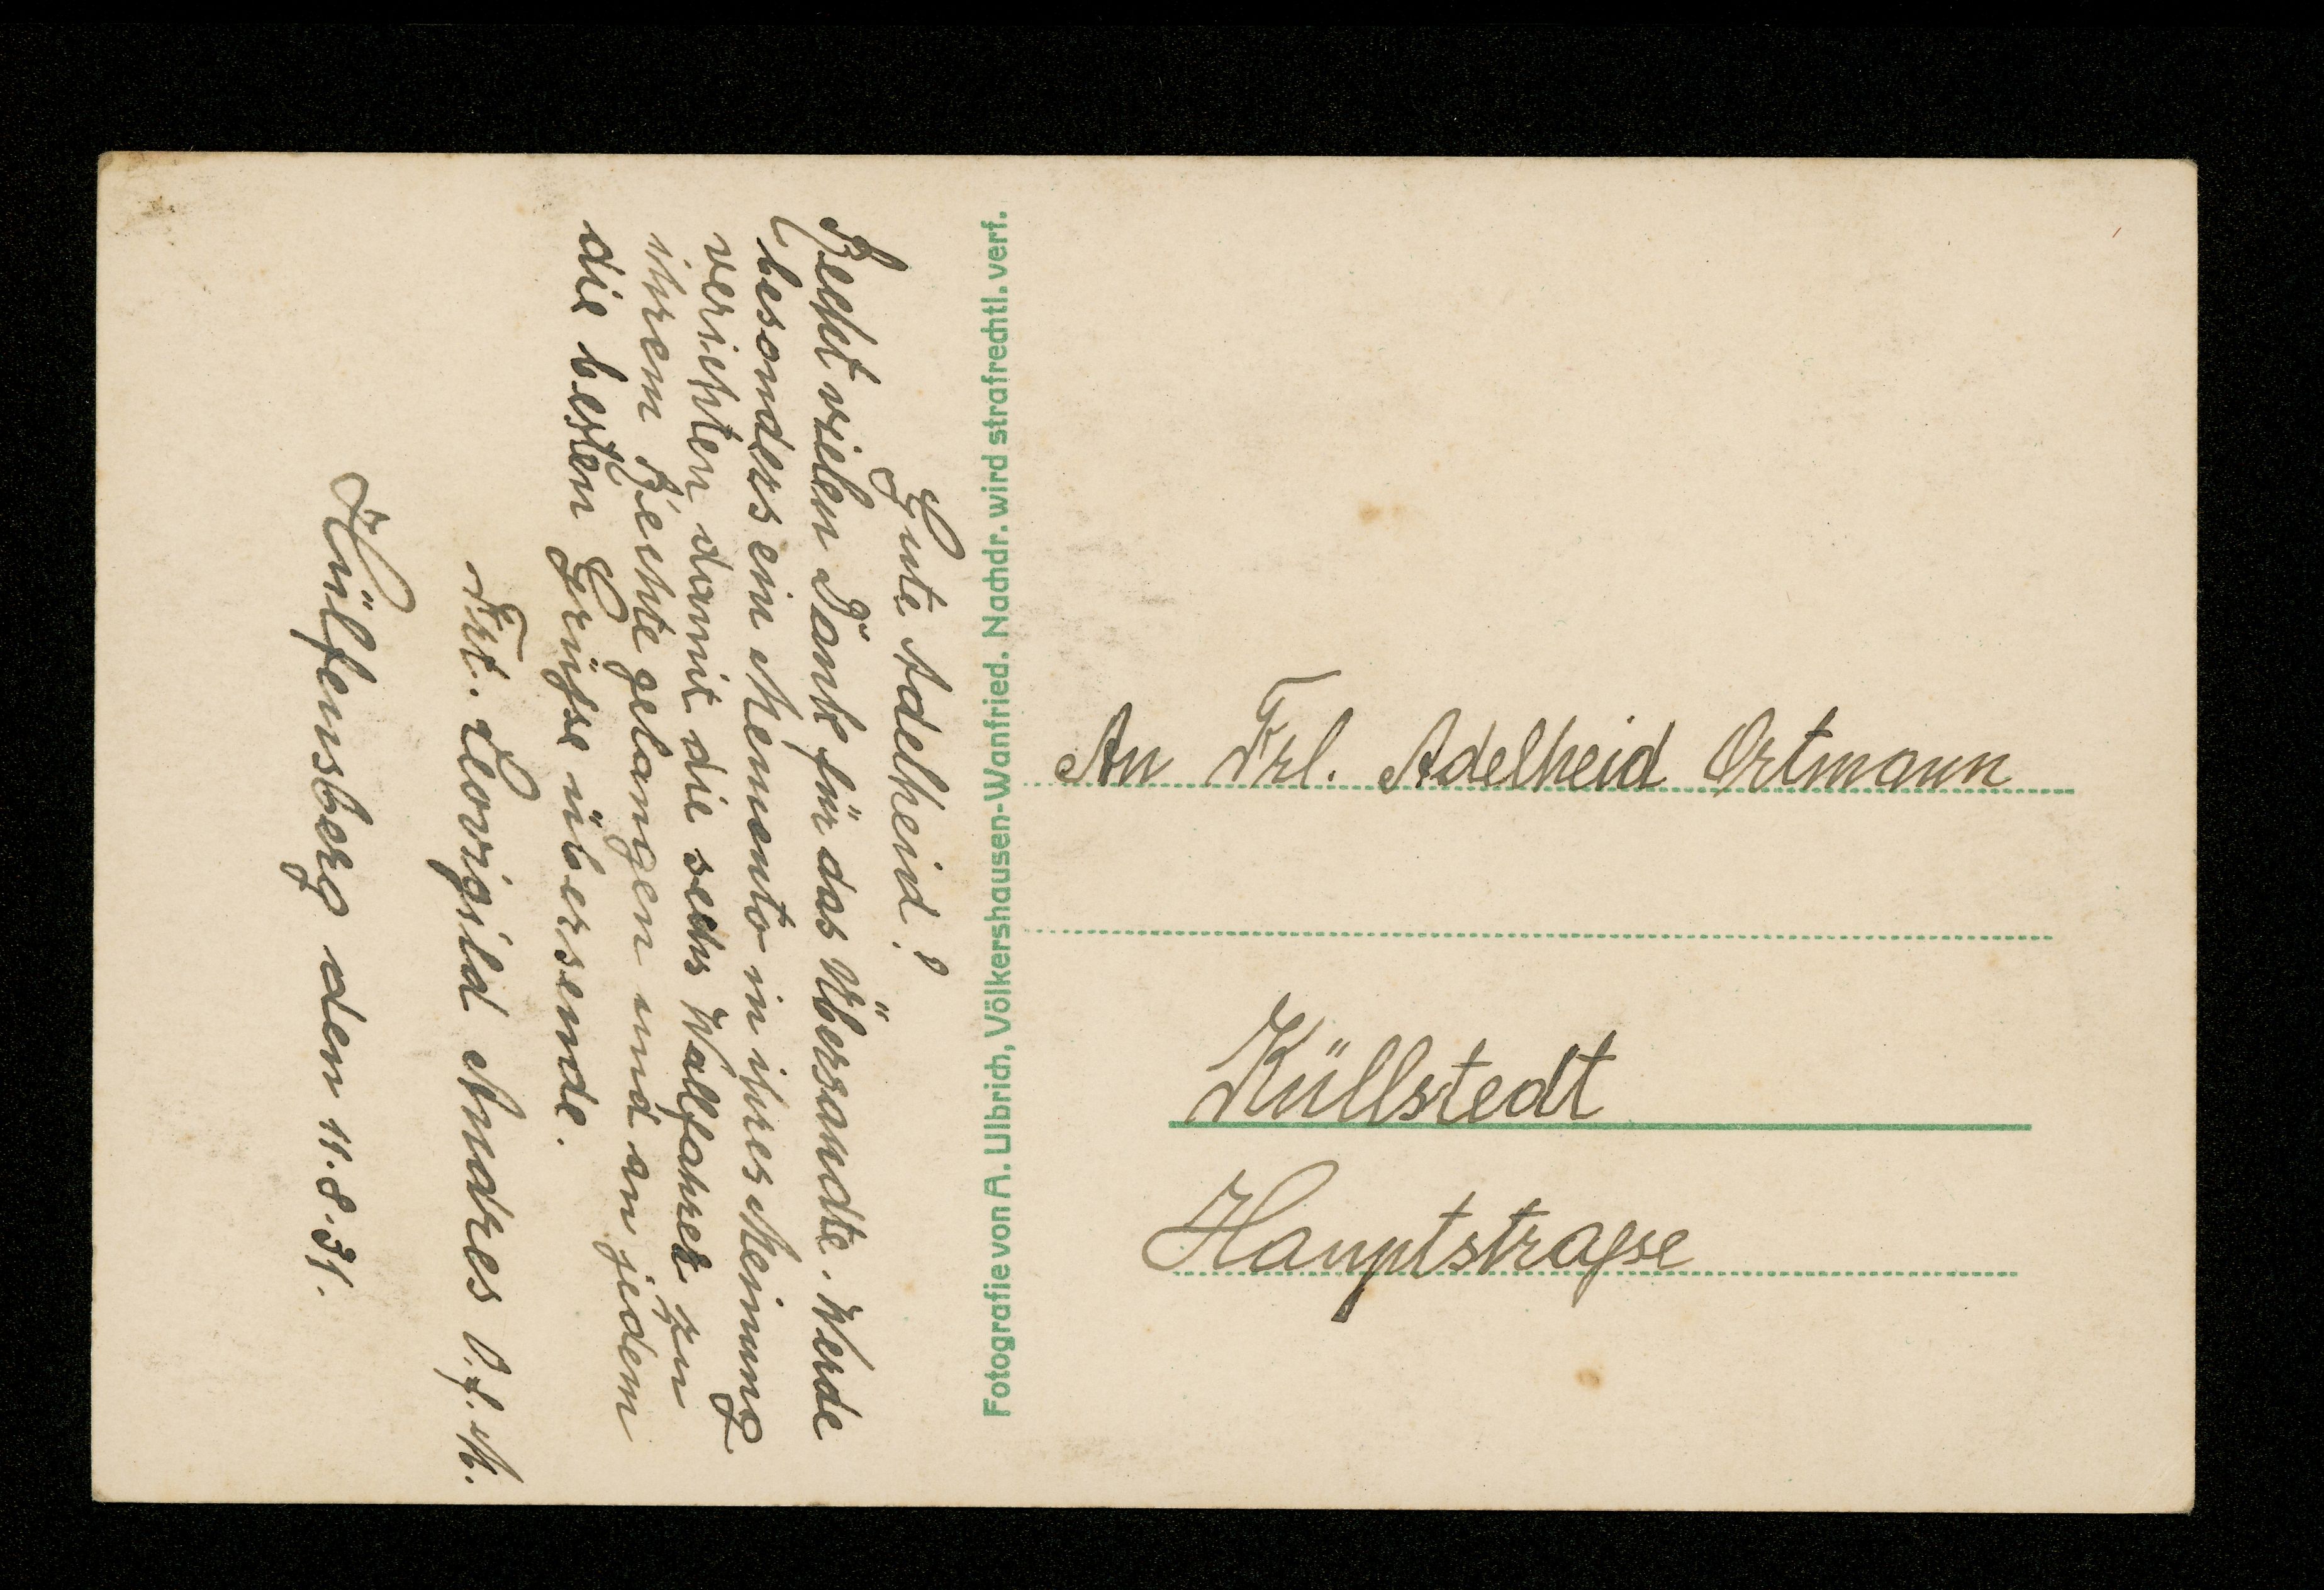 Gute Adelheid!
Recht vielen Dank für das Übersandte. Werde
besonders ein Memento in ihres Meinung
verichten damit die sechs Wallfahrer zu
ihrem Rechte gelangen und an jedem
die besten Grüsse übersende.
Frt. Lovigild Andres O.f.M.
Hülfensberg den 11.8.31.
Fotografie von A. Ulbrich, Völkershausen-Wanfried. Nachdr. wird strafrechtl. verf.
An Frl. Adelheid Ortmann
Küllstedt
Hauptstrasse